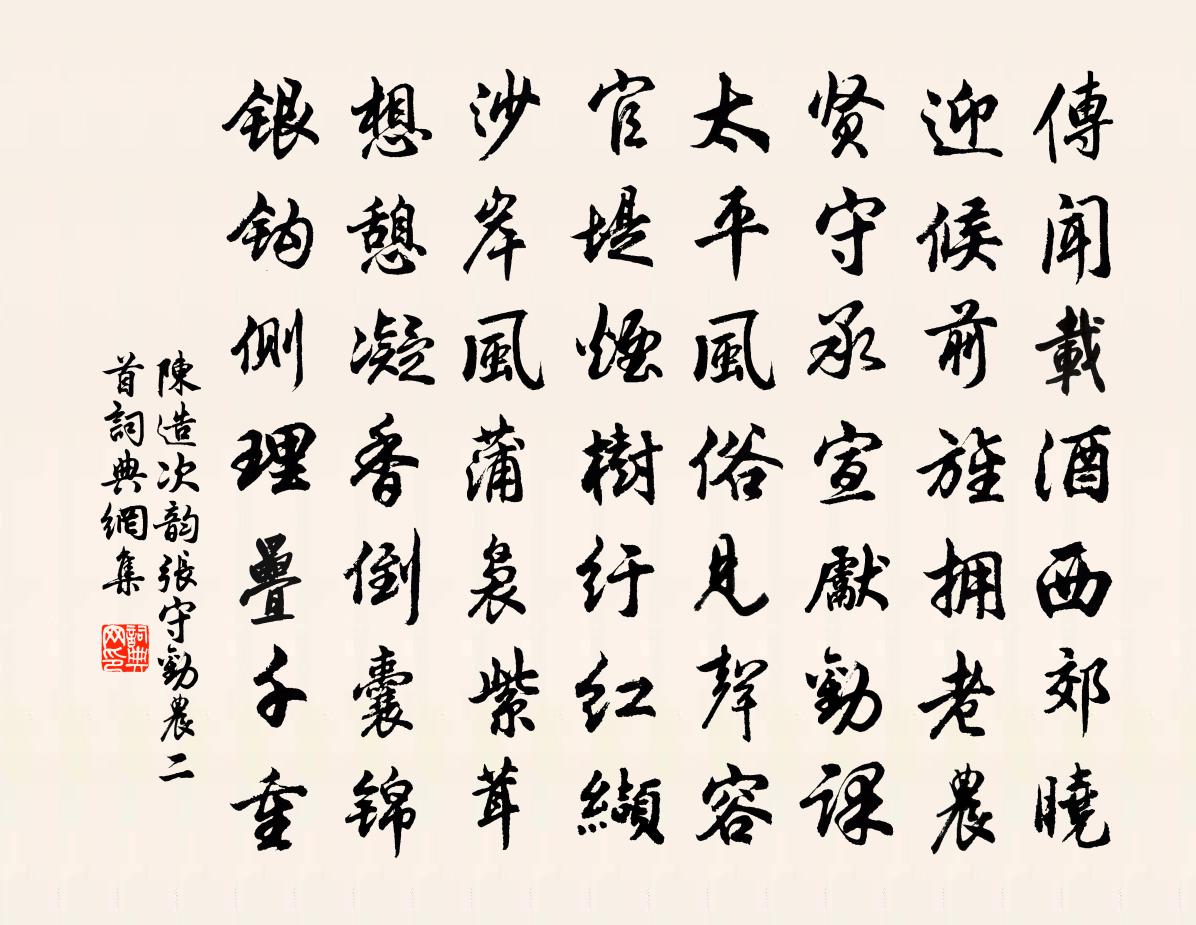 傳聞載酒西郊曉
迎候前旌拥老農
贤守承宣獻勸課
太平風俗見聲容
官堤煙樹紆红纈
沙岸風蒲裊紫茸
想憩凝香倒囊锦
银钩側理疊千重
陳造次韵張守勸農二
首詞典網集
詞典
网印